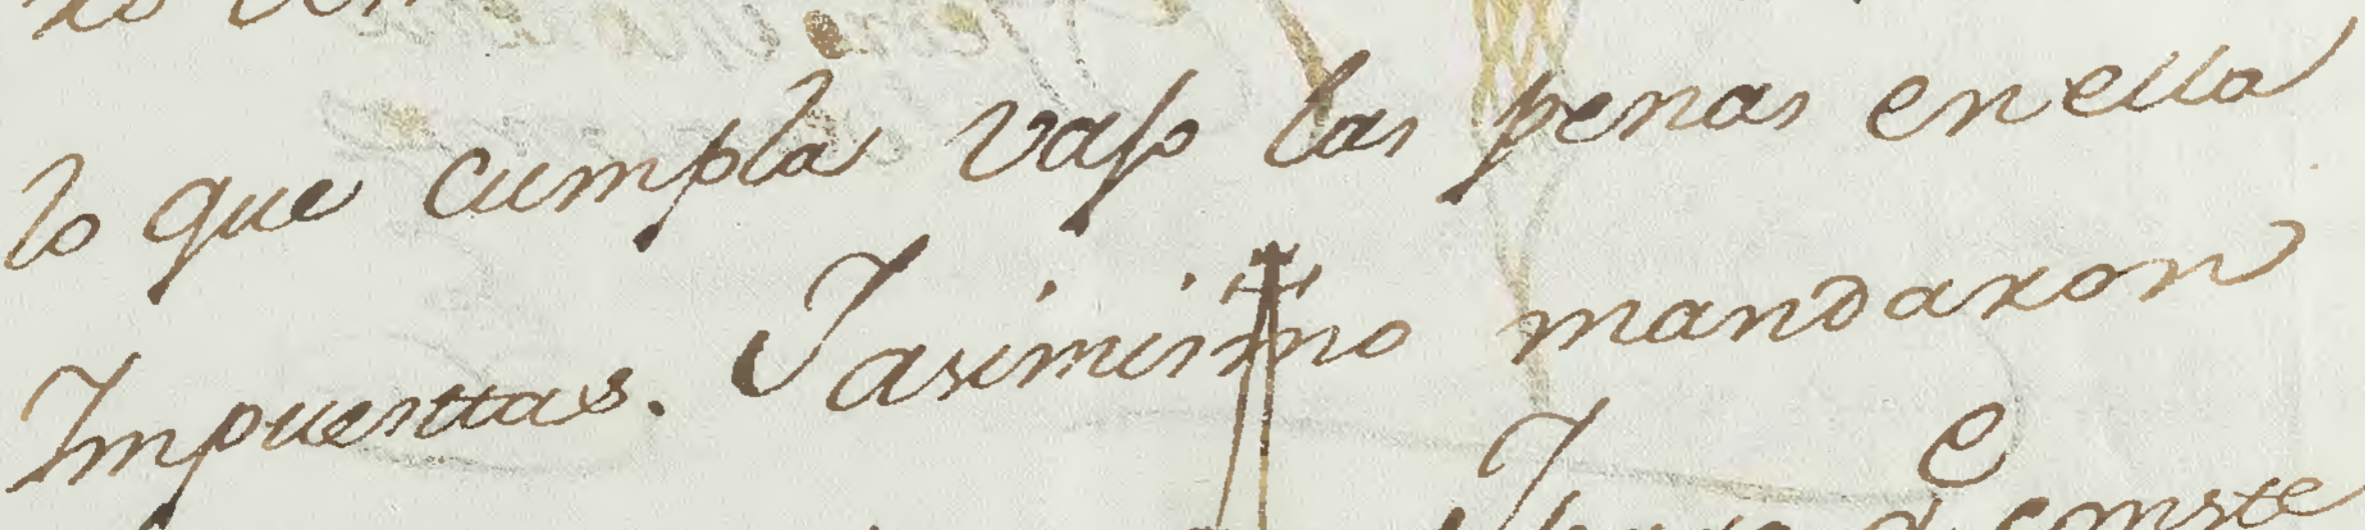 lo que cumpla vajo las penas en ella
Impuesttas. Y asimismo mandaron
conste